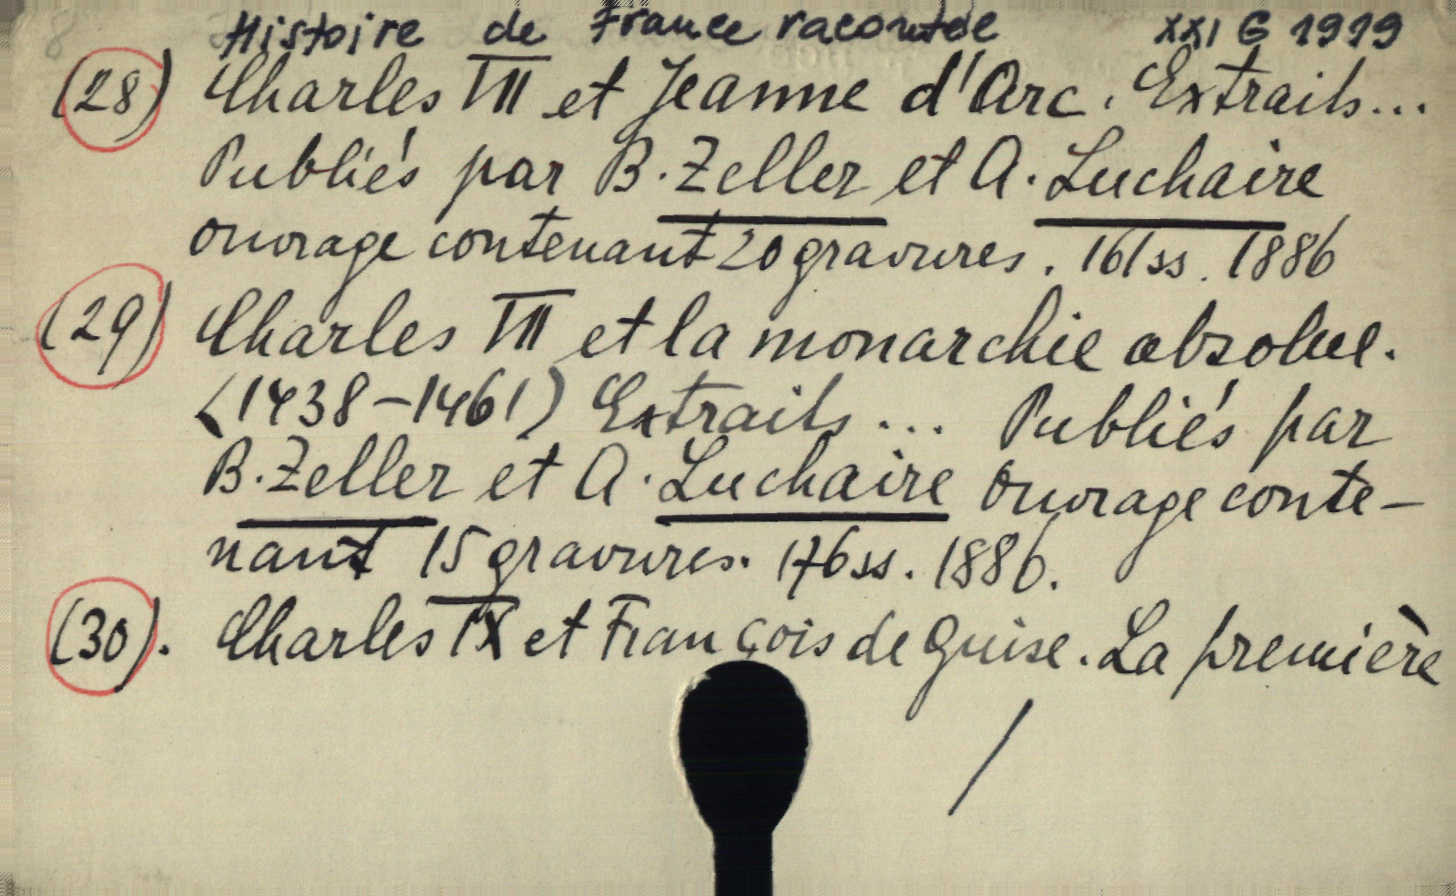 Histoire de France racontée XXI G 1919
(28) Charles VII et Jeanne d'Arc. Extraits...
Publiés par B. Zeller et A. Luchaire
ouvrage contenant 20 gravures. 161 ss. 1886
(29) Charles VII et la monarchie absolue.
(1438-1461) Extraits... Publiés par
B. Zeller et A. Luchaire Ouvrage conte-
nant 15 gravures. 176 ss. 1886.
(30). Charles IX et François de Guise. La première
/